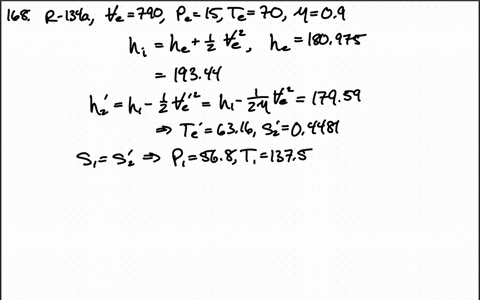 168. R-134a, Ve=790, Pe=15, Te=70, η=0.9
hi = he + 1/2 Ve², he=180.975
= 193.44
h2' = h1 - 1/2 Ve'² = h1 - 1/2η Ve² = 179.59
⇒ Te'=63.16, S2'=0.4481
S1=S2' ⇒ P1=56.8, T1=137.5